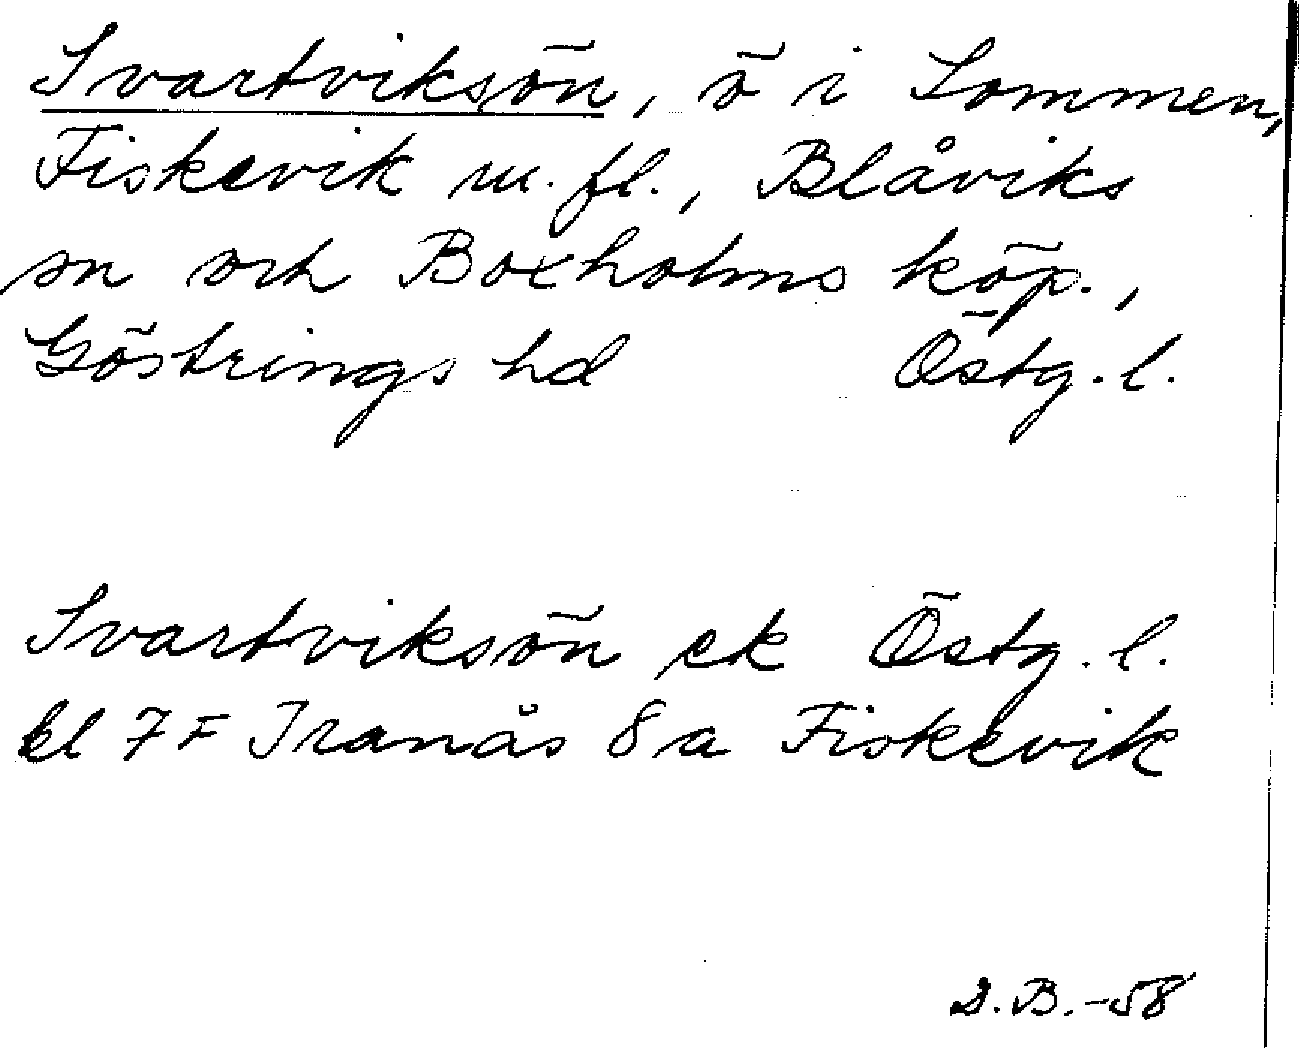 Svartviksön, ö i Sommen,
Fiskevik m.fl., Blåviks
sn och Boxholms köp.,
Göstrings hd Östg.l.
Svartviksön ek Östg.l.
bl 7F Tranås 8a Fiskevik
D.B.-58